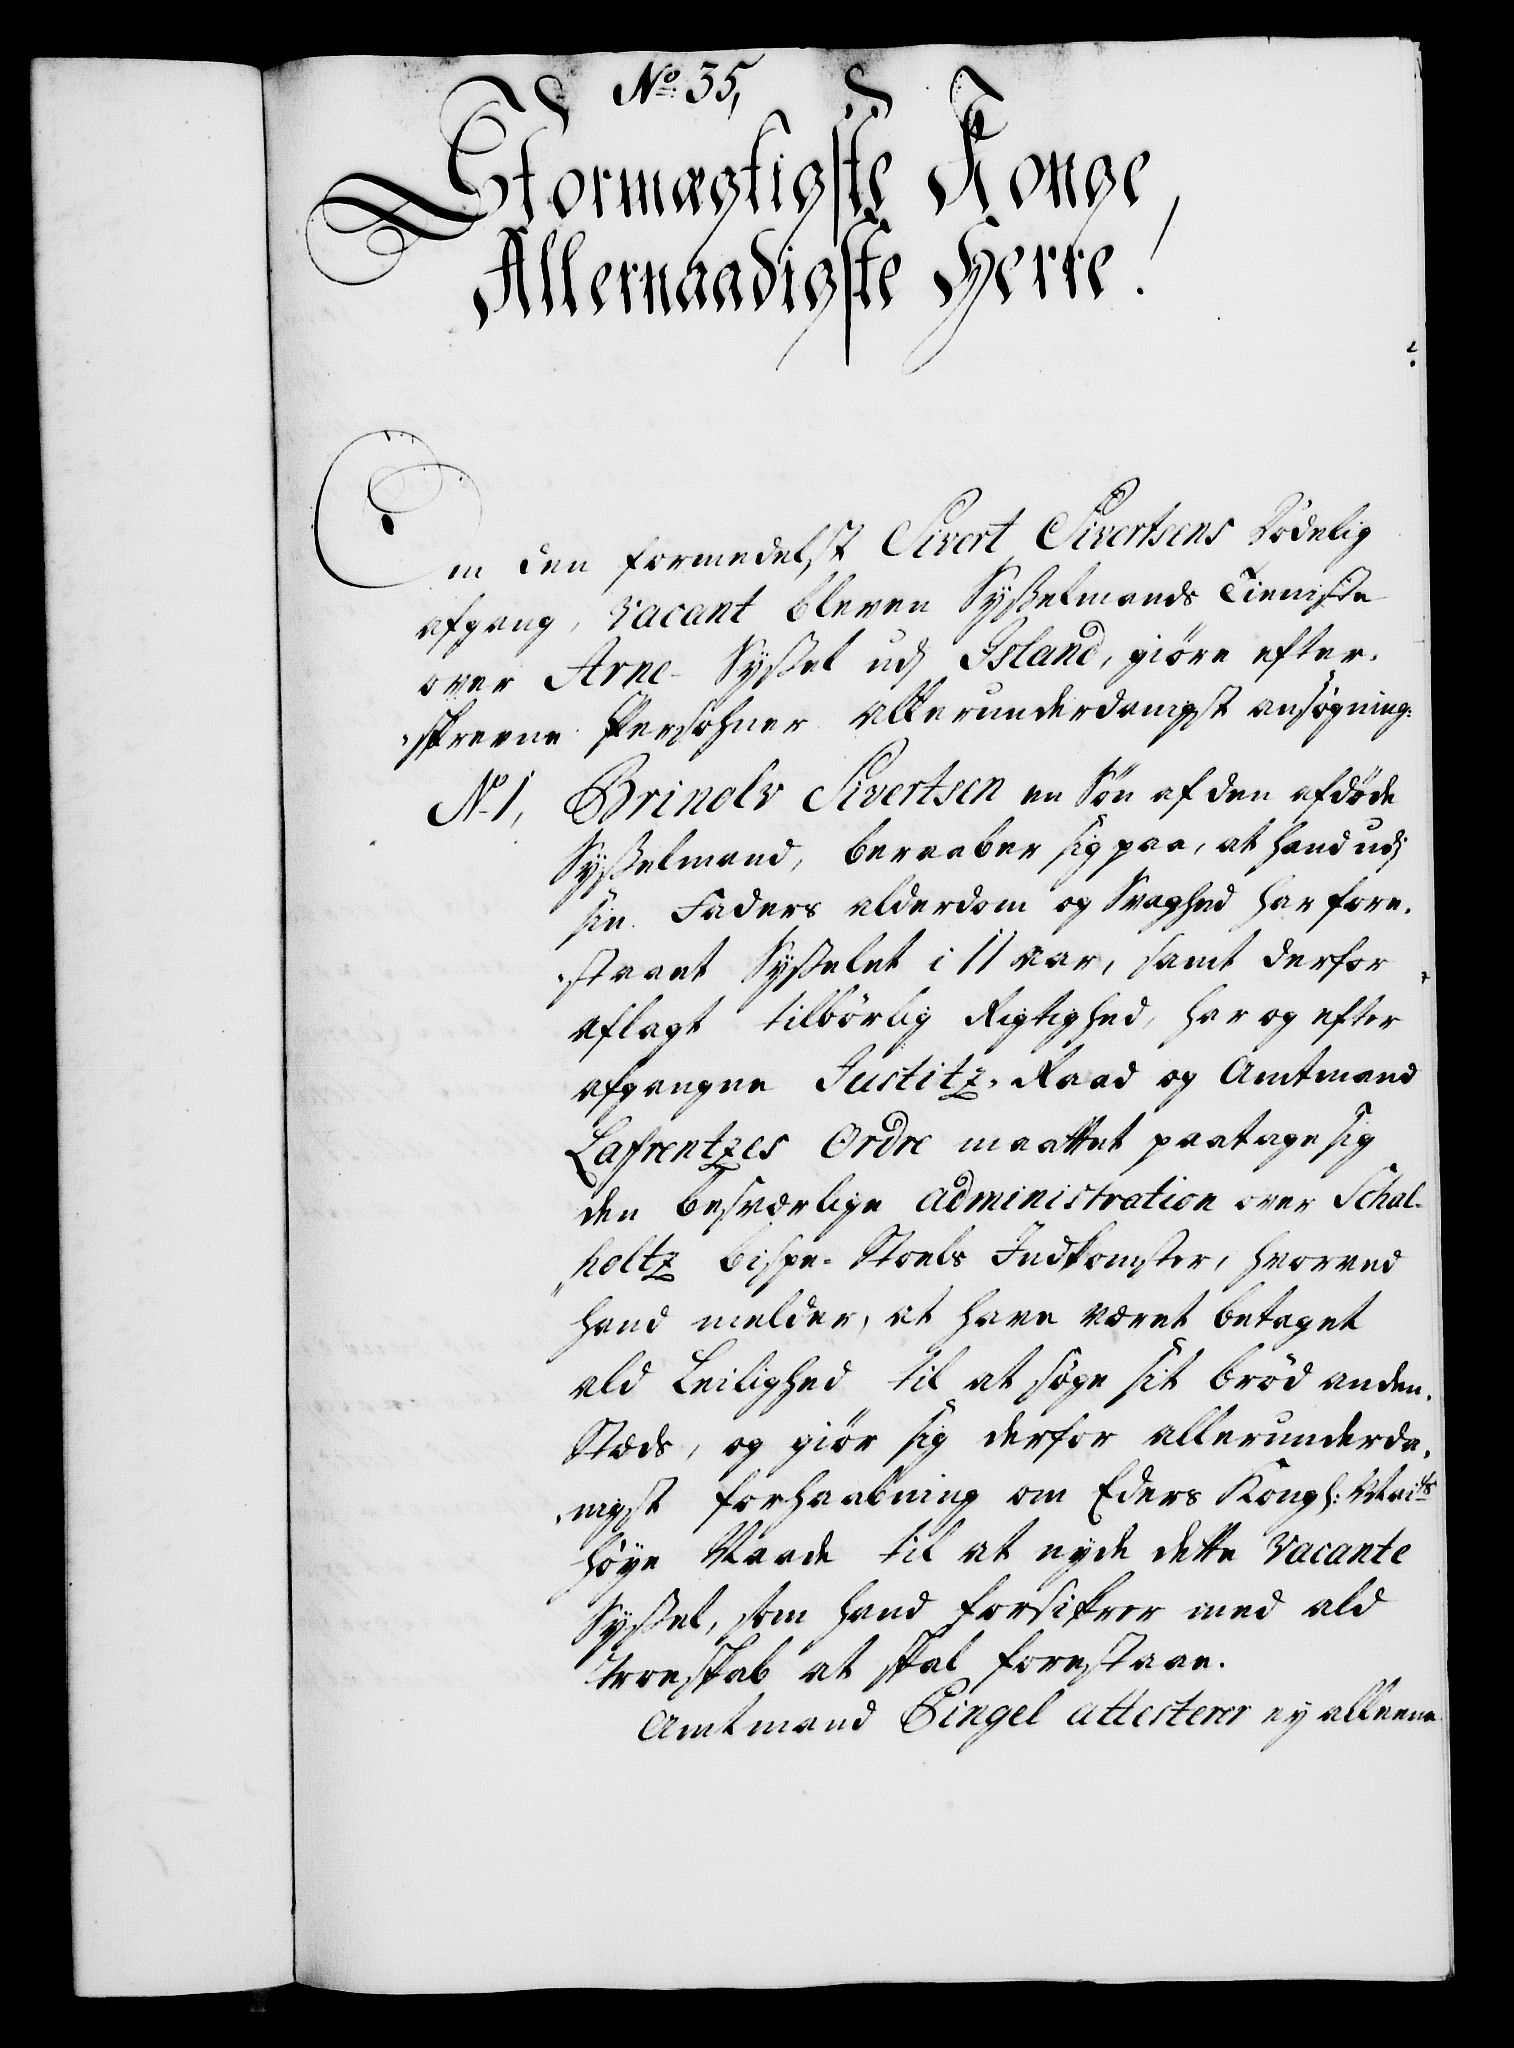 No. 35,
Stormægtigste Konge,
Allernaadigste Herre!
Om den formedelst Sivert Sivertsens Dödelig
afgang, vacant bleven Sysselmands Tieniste
over Arne-Syssel udj Island, giöre efter-
skrevne Persohner allerunderdanigst ansøgning:
No 1, Brinolv Sivertsen en Sön af den afdöde
Sysselmand, beraaber sig paa, at hand udj
sin Faders alderdom og Svaghed har fore-
staaet Sysselet i 11 aar, samt derfor
aflagt tilbörlig Rigtighed, har og efter
afgangne Justitz-Raad og Amtmand
Lafrentzes Ordre maattet paatage sig
den besværlige administration over Schal-
holtz bispe-Stoels Indkomster, hvorved
hand melder, at have været betaget
ald Leilighed til at søge sit bröd anden-
Stæds, og giör sig derfor allerunderda-
nigst forhaabning om Eders Kongl: Maits
höye Naade til at nyde dette vacante
Syssel, som hand forsikrer med ald
troeskab at skal forestaae.
Amtmand Pingel attesterer ey alleene